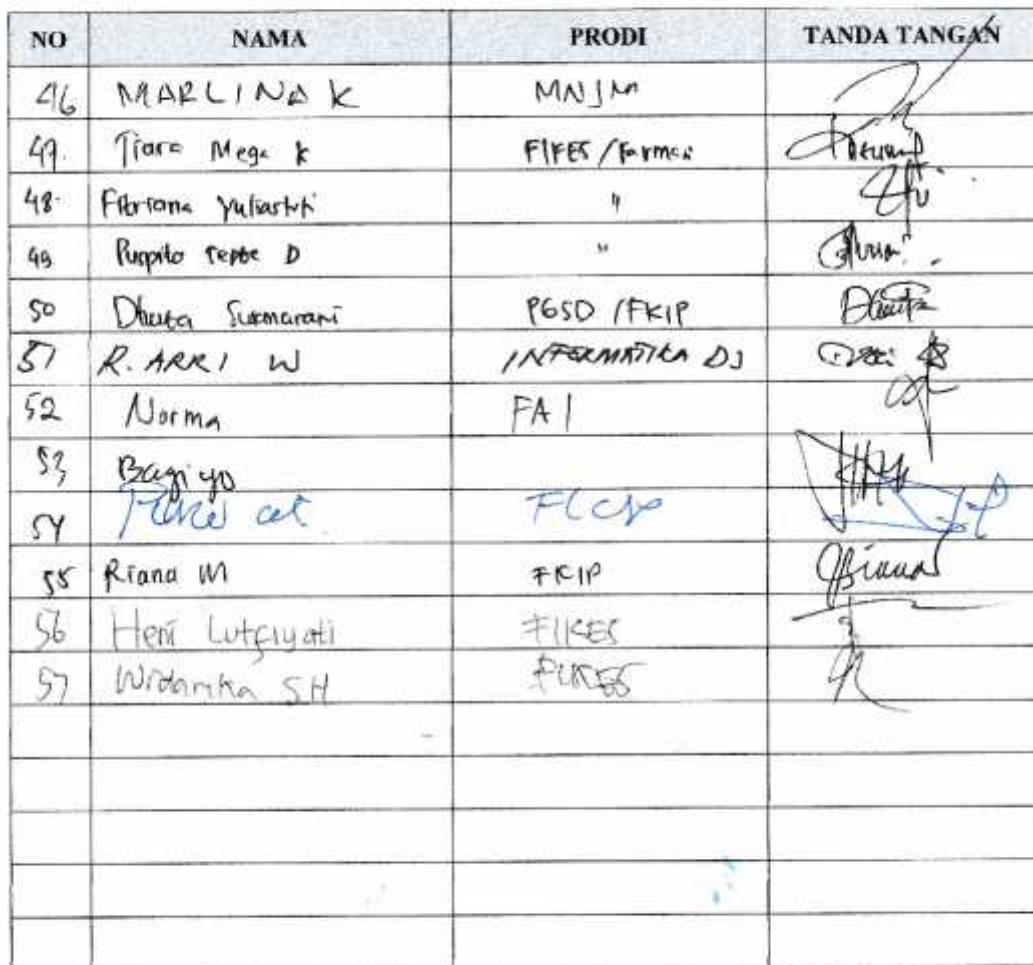 NO NAMA PRODI TANDA TANGAN
46 MARLINA K MNJM
47. Tiara Mega K FIKES / Farmasi
48. Fitriana Yuliastuti "
49 Puspita Septie D "
50 Dhuta Sukmarani PGSD / FKIP
51 R. ARRI W INFORMATIKA D3
52 Norma FAI
53 Bagiyo
54
55 Riana M FKIP
56 Heni Lutfiyati FIKES
57 Widarika SH FIKES